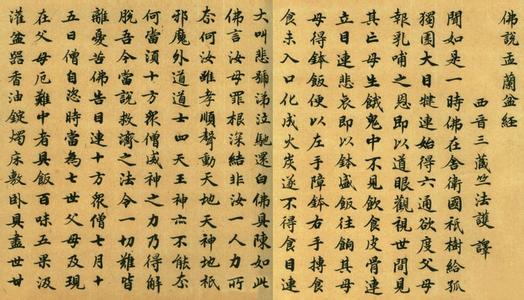 佛說盂蘭盆經
西晉三藏竺法護譯
聞如是一時佛在舍衛國祇樹給孤
獨園大目犍連始得六通欲度父母
報乳哺之恩即以道眼觀視世間見
其亡母生餓鬼中不見飲食皮骨連
立目連悲哀即以鉢盛飯往餉其母
母得鉢飯便以左手障鉢右手摶食
食未入口化成火炭遂不得食目連
大叫悲號涕泣馳還白佛具陳如此
佛言汝母罪根深結非汝一人力所
奈何汝雖孝順聲動天地天神地祇
邪魔外道道士四天王神亦不能奈
何當須十方眾僧威神之力乃得解
脫吾今當說救濟之法令一切難皆
離憂苦佛告目連十方眾僧七月十
五日僧自恣時當為七世父母及現
在父母厄難中者具飯百味五果汲
灌盆器香油錠燭床敷臥具盡世甘